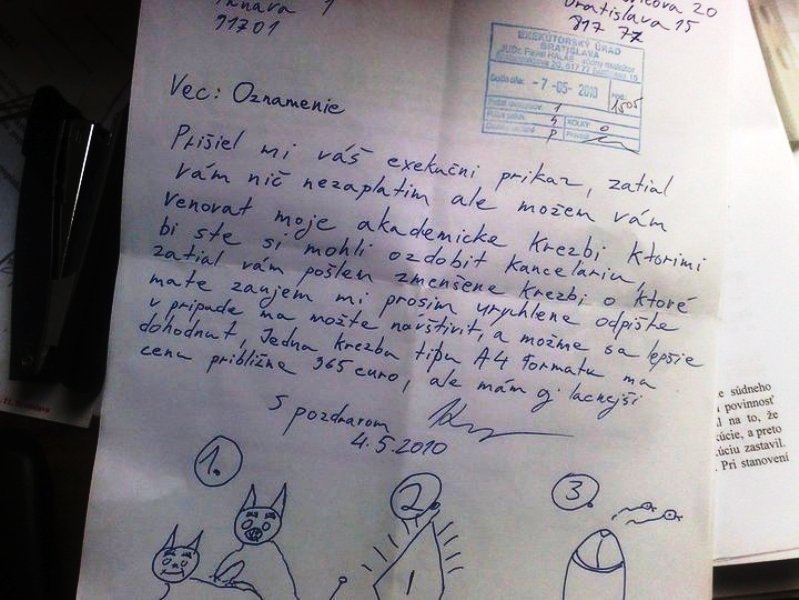 1
91701
20
Bratislava 15
817 72
EXEKÚTORSKÝ ÚRAD
BRATISLAVA
-7-05-2010
1505
1
4
0
P
Vec: Oznamenie
Prišiel mi váš exekučni prikaz, zatial
vám nič nezaplatim ale možem vám
venovat moje akademicke krezbi ktorimi
bi ste si mohli ozdobit kancelariu,
zatial vám pošlen zmenšene krezbi o ktoré
mate zaujem mi prosim urychlene odpište
v pripade ma možte navštivit, a možme sa lepšie
dohodnut, Jedna krezba tipu A4 formatu ma
cenu približne 365 euro, ale mám aj lacnejši
S pozdravom
4.5.2010
1.
2.
3.
1
e súdneho
povinnosť
na to, že
úcie, a preto
úciu zastavil.
. Pri stanovení